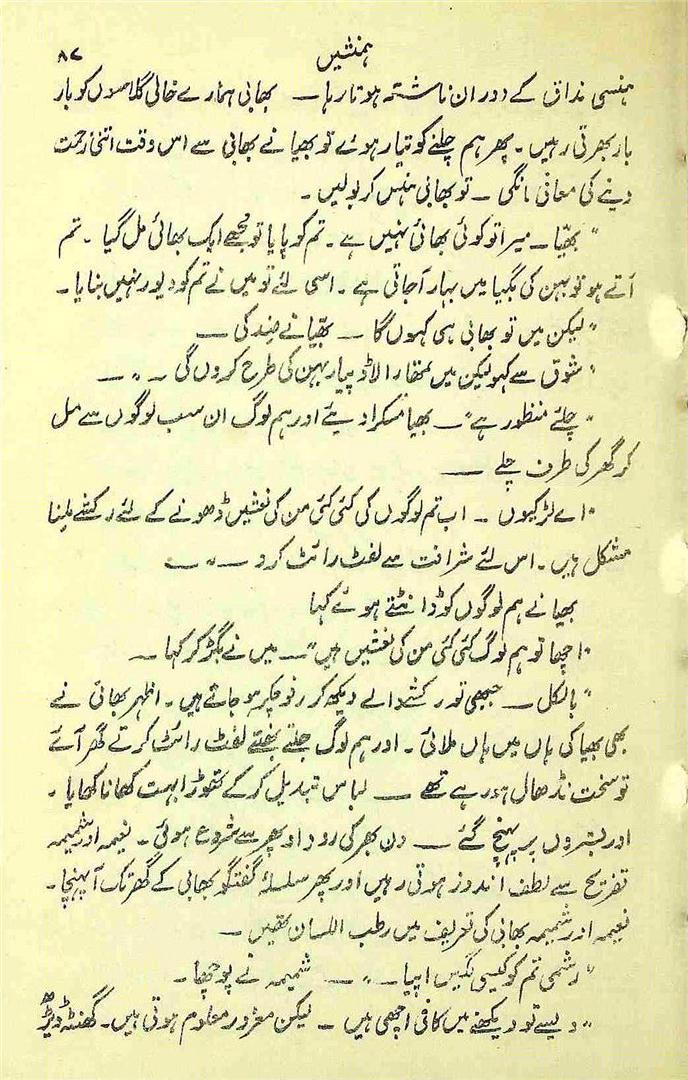 ہمنشیں
۸۷
ہنسی مذاق کے دوران ناشتہ ہوتا رہا — بھابی ہمارے خالی گلاسوں کو بار
بار بھرتی رہیں۔ پھر ہم چلنے کو تیار ہوئے تو بھیا نے بھابی سے اس وقت اتنی زحمت
دینے کی معافی مانگی — تو بھابی ہنس کر بولیں۔
"بھیّا — میرا تو کوئی بھائی نہیں ہے۔ تم کو پایا تو مجھے ایک بھائی مل گیا۔ تم
آتے ہو تو بہن کی بگھیا میں بہار آجاتی ہے۔ اسی لئے تو میں نے تم کو دیور نہیں بنایا۔
"لیکن میں تو بھابی ہی کہوں گا — بھیّا نے ضد کی —
"شوق سے کہو لیکن میں تمھارا لاڈ پیار بہن کی طرح کروں گی — " —
"چلئے منظور ہے" — بھیا مسکرا دیئے اور ہم لوگ ان سب لوگوں سے مل
کر گھر کی طرف چلے —
"اے لڑکیوں — اب تم لوگوں کی کئی کئی من کی نعشیں ڈھونے کے لئے رکشے ملنا
مشکل ہیں۔ اس لئے شرافت سے لفٹ رائٹ کرو — " —
بھیا نے ہم لوگوں کو ڈانٹتے ہوئے کہا
"اچھا تو ہم لوگ کئی کئی من کی نعشیں ہیں" — میں نے بگڑ کر کہا —
"بالکل — جبھی تو رکشہ والے دیکھ کر رفوچکر ہو جاتے ہیں۔ اظہر بھائی نے
بھی بھیا کی ہاں میں ہاں ملائی۔ اور ہم لوگ جلتے بھنتے لفٹ رائٹ کرتے گھر آئے
تو سخت نڈھال ہو رہے تھے — لباس تبدیل کر کے تھوڑا بہت کھانا کھایا۔
اور بستروں پر پہنچ گئے — دن بھر کی روداد پھر سے شروع ہوئی۔ نعیمہ اور شمیمہ
تفریح سے لطف اندوز ہوتی رہیں اور پھر سلسلۂ گفتگو بھابی کے گھر تک آپہنچا۔
نعیمہ اور شمیمہ بھابی کی تعریف میں رطب اللسان تھیں —
"رشمی تم کو کیسی لگیں اپیا — " — شمیمہ نے پوچھا۔
"ویسے تو دیکھنے میں کافی اچھی ہیں — لیکن مغرور معلوم ہوتی ہیں۔ گھنٹہ ڈیڑھ